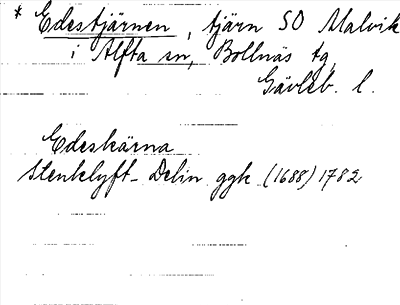 * Edestjärnen, tjärn SO Malvik
i Alfta sn, Bollnäs tg,
Gävleb. l.
Edeskärna
Stenklyft- Delin ggk (1688) 1782